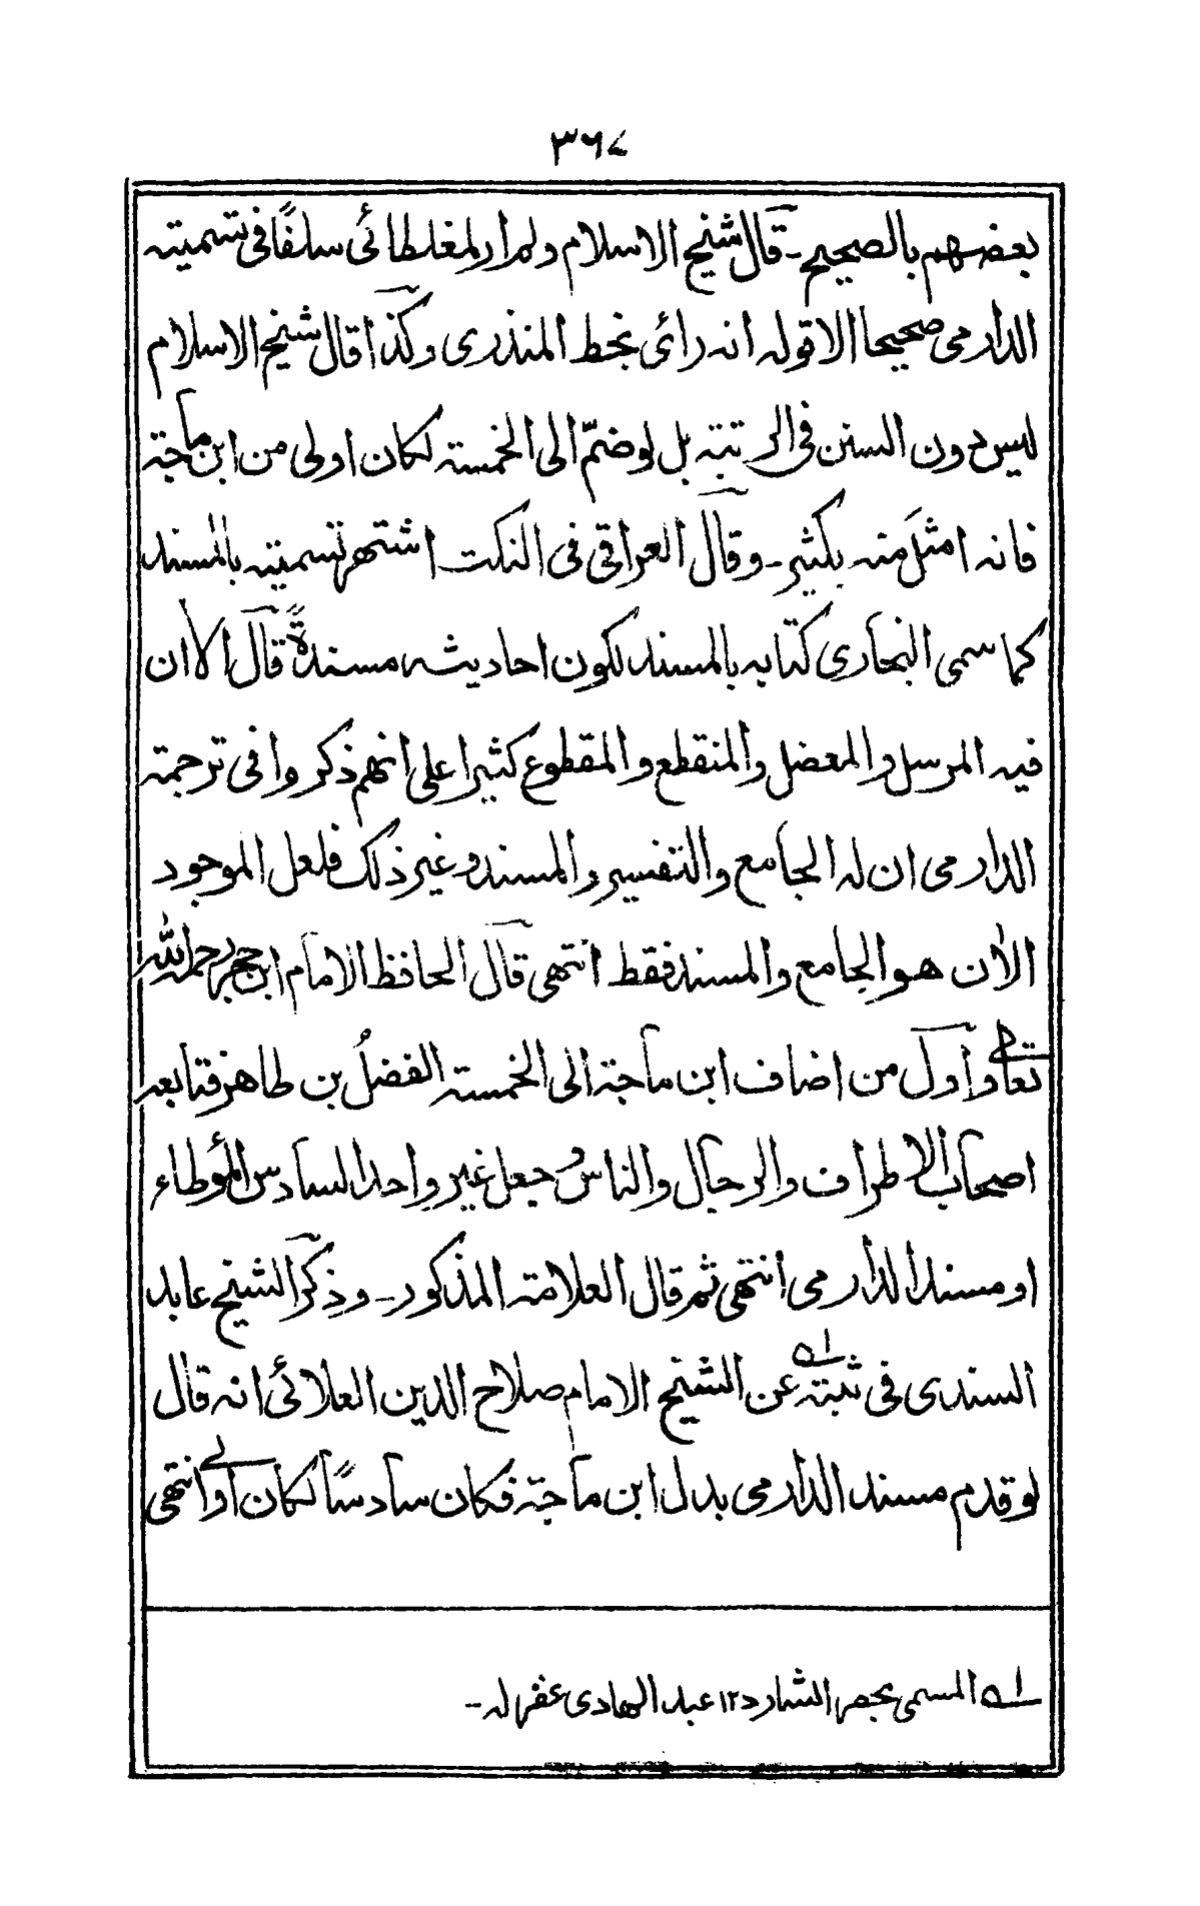 ۳۶۷
بعضهم بالصحيح ۔ قال شيخ الاسلام ولم ار لمغلطائى سلفًا فى تسميته
الدارمى صحيحا الا قوله انه رائى بخط المنذرى وكذا قال شيخ الاسلام
ليس دون السنن فى الرتبة بل لو ضمّ الى الخمسة لكان اولى من ابن ماجة
فانه امثل منه بكثير ۔ وقال العراقى فى النكت اشتهر تسميته بالمسند
كما سمى البخارى كتابه بالمسند لكون احاديثه مسندةً قال الا ان
فيه المرسل والمعضل والمنقطع والمقطوع كثيرا على انهم ذكروا فى ترجمة
الدارمى ان له الجامع والتفسير والمسند وغير ذلك فلعل الموجود
الاٰن هو الجامع والمسند فقط انتهى قال الحافظ الامام ابن حجر رحمه الله
تعالے واول من اضاف ابن ماجة الى الخمسة الفضلُ بن طاهر فتابعه
اصحاب الاطراف والرجال والناسُ وجعل غير واحد السادس المؤطاء
او مسند الدارمى انتهى ثم قال العلامة المذكور ۔ وذكر الشيخ عابد
السندى فى ثبته ؎۱ عن الشيخ الامام صلاح الدين العلائى انه قال
لو قدم مسند الدارمى بدل ابن ماجة فكان سادسًا لكان اولے انتهى
؎۱ المسمى بحصر الشارد ۱۲ عبد الهادى غفر له ۔